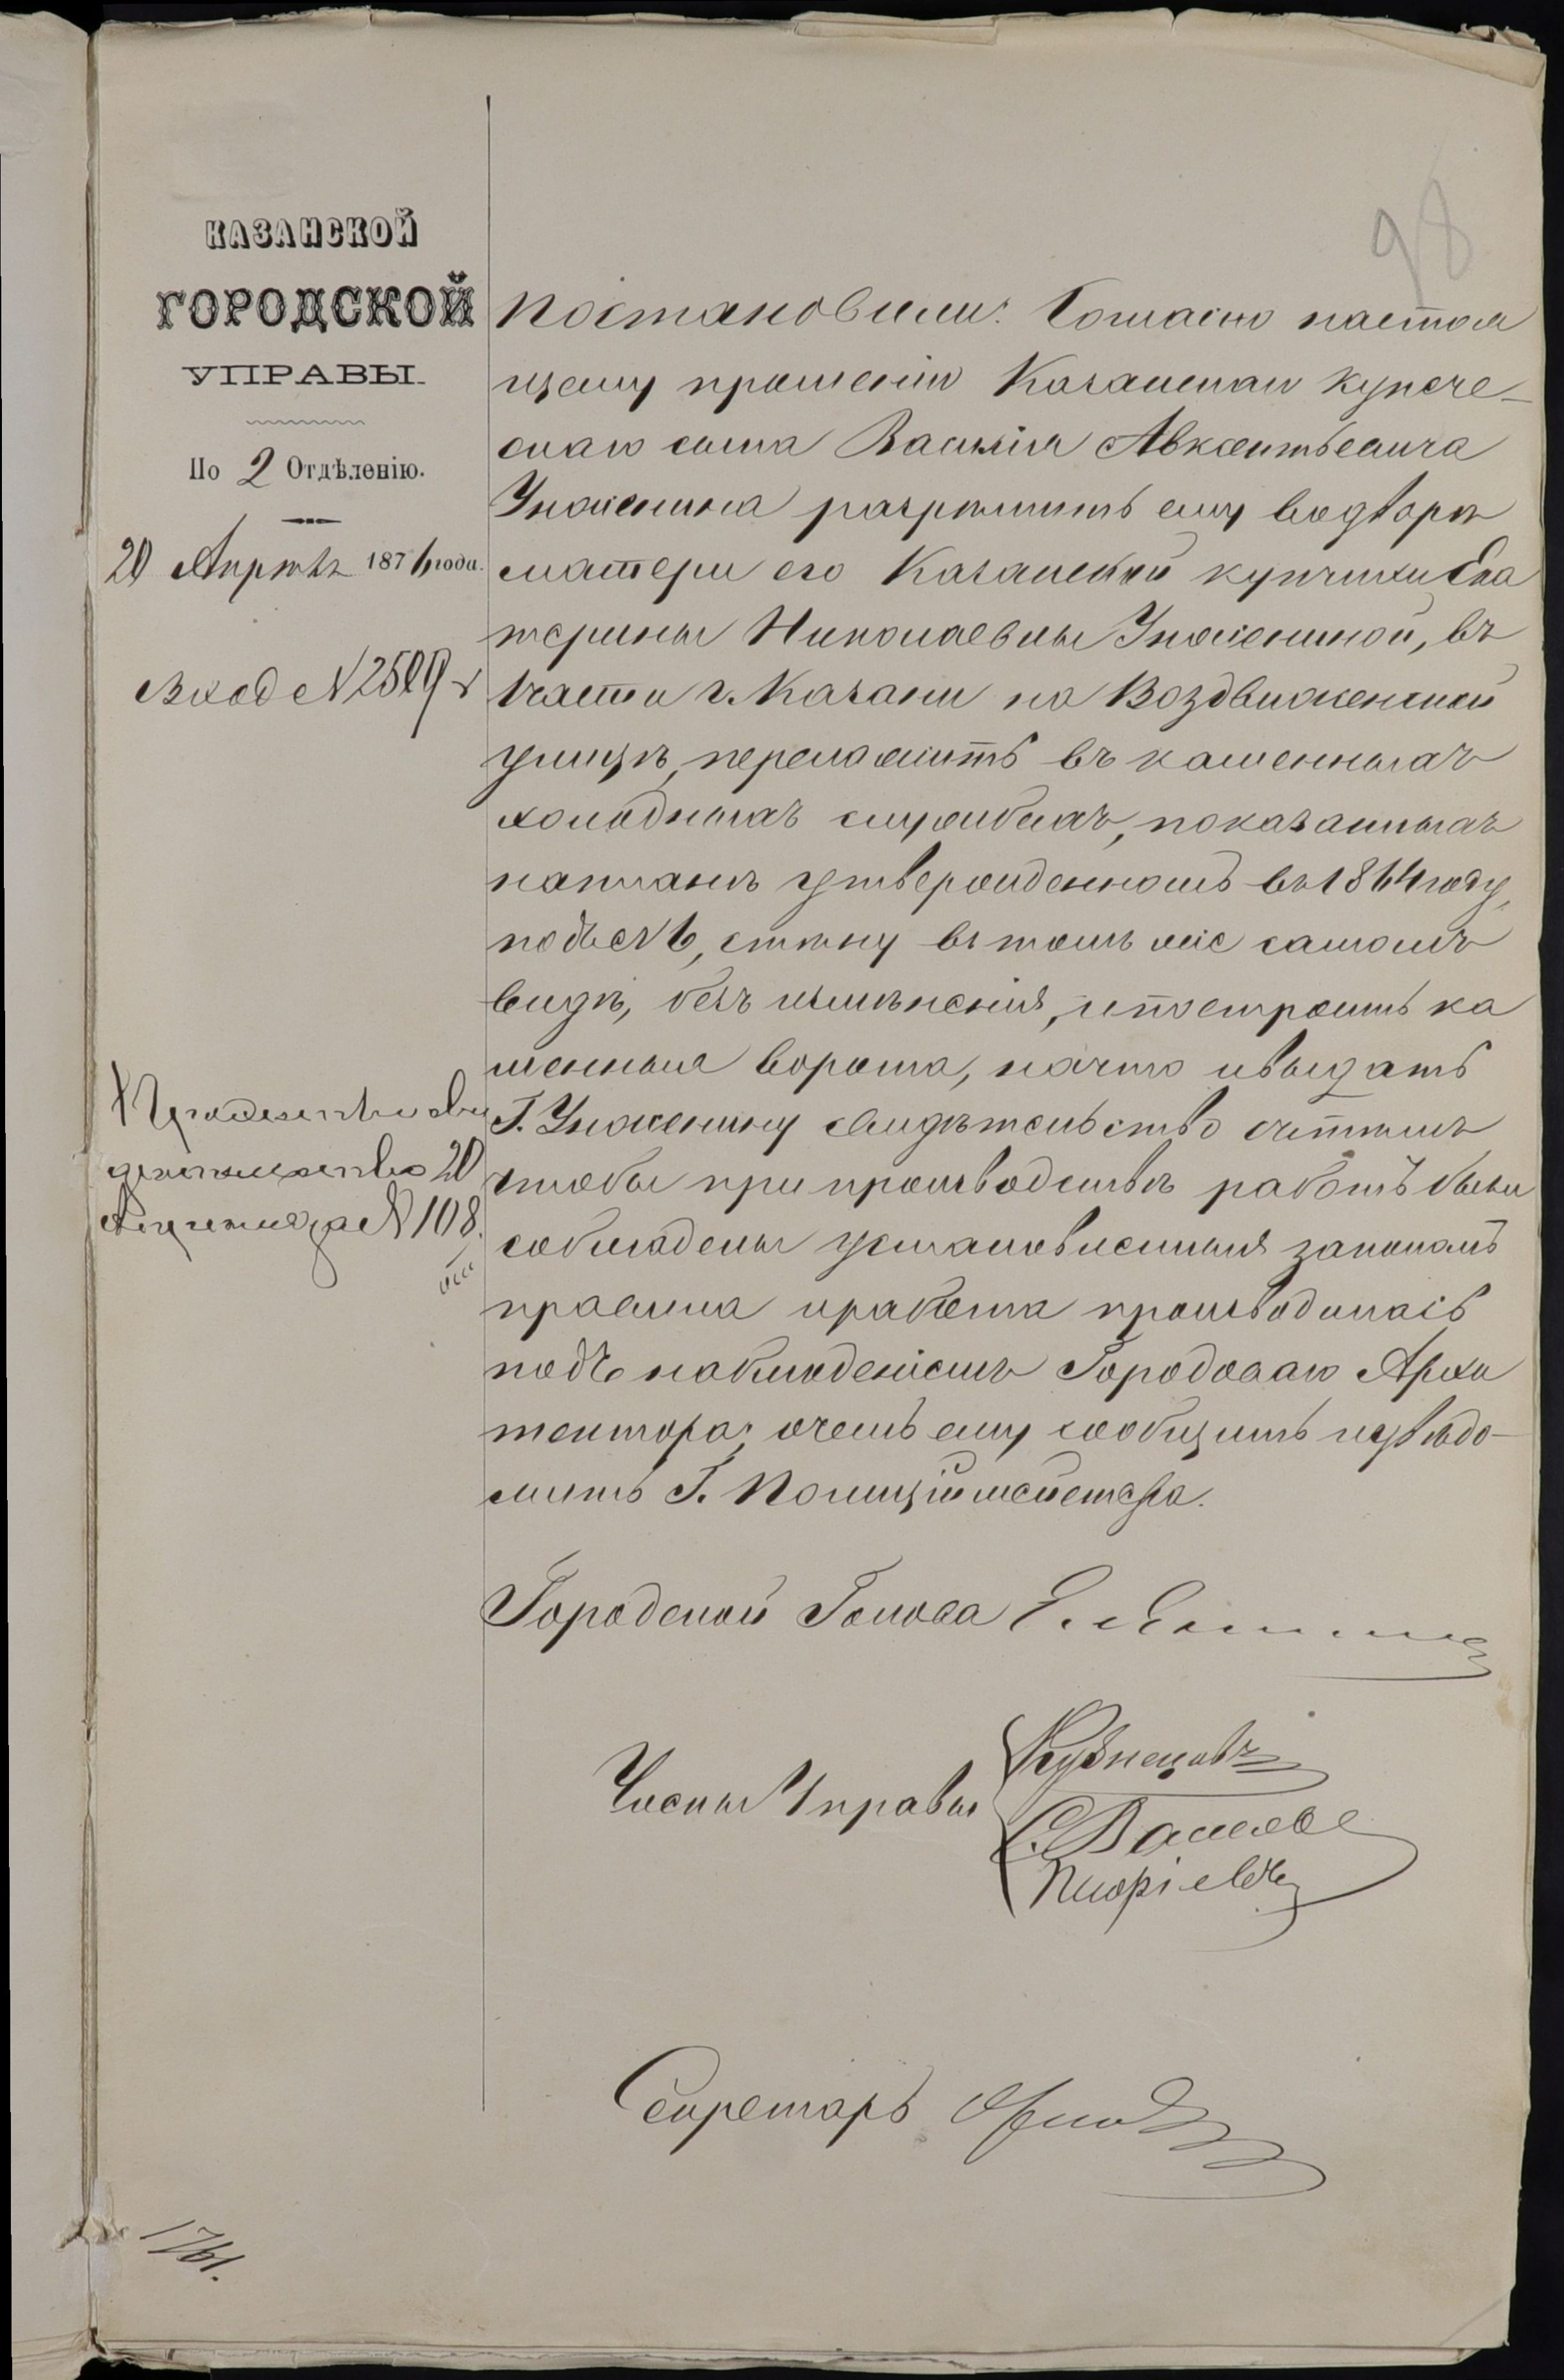 98
КАЗАНСКОЙ
ГОРОДСКОЙ
УПРАВЫ.
По 2 Отдѣленію.
20 Апрѣля 1876 года.
Вход № 2589
Постановили: Согласно настоя
щему прошенію Казанскаго купече-
скаго сына Василія Авксентьевича
Унженина разрѣшить ему во дворѣ
матери его Казанской купчихи Ека
терины Николаевны Унжениной, въ
1 части г. Казани на Воздвиженской
улицѣ, переложить въ каменныхъ
холодныхъ службахъ, показанныхъ
на планѣ утвержденномъ въ 1864 году,
подъ № 6, стѣну въ томъ же самомъ
видѣ, безъ измѣненія, и построить ка
менныя ворота, на что и выдать
Г. Унженину свидѣтельство съ тѣмъ
чтобы при производствѣ работъ были
соблюдены установленныя закономъ
правила и работа производилась
подъ наблюденіемъ Городоваго Архи
тектора; о чемъ ему сообщить и увѣдо-
мить Г. Полиціймейстера.
20
Апрѣля за № 108.
Городской Голова
Члены Управы
Кузнецовъ
С.
Секретарь
1761.